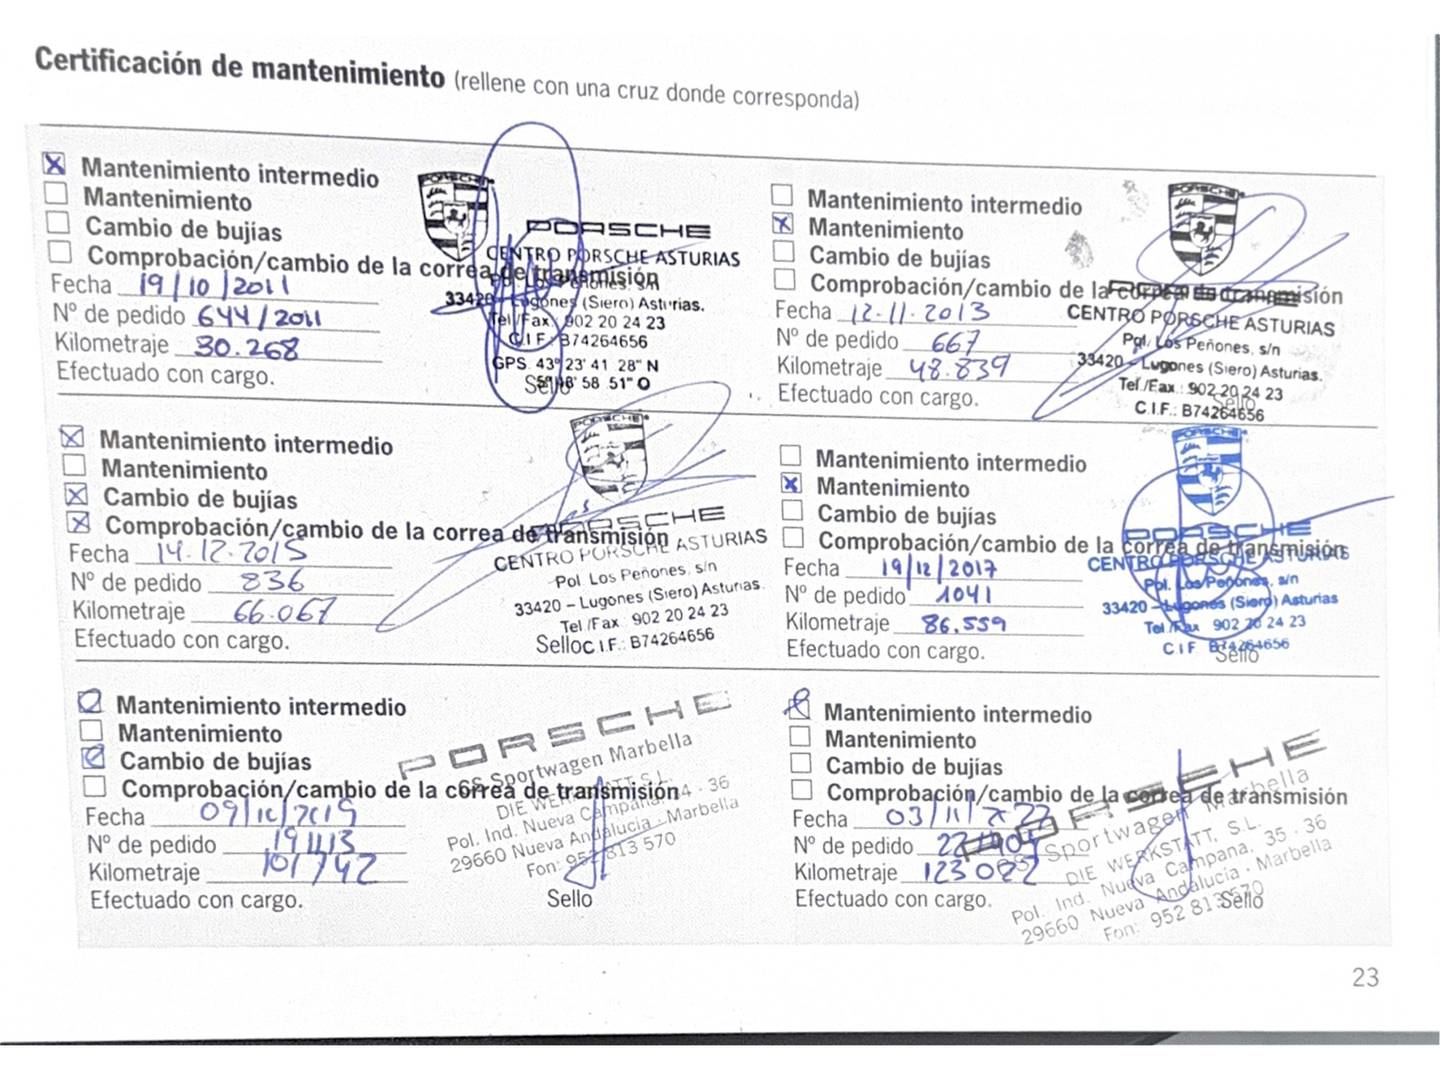 Certificación de mantenimiento (rellene con una cruz donde corresponda)
Mantenimiento intermedio
Mantenimiento
Cambio de bujías
Comprobación/cambio de la correa de transmisión
Fecha 19/10/2011
Nº de pedido 644/2011
Kilometraje 30.268
Efectuado con cargo.
PORSCHE
PORSCHE
CENTRO PORSCHE ASTURIAS
Pol. Los Peñones, s/n
33420 – Lugones (Siero) Asturias.
Tel/Fax. 902 20 24 23
C.I.F. B74264656
GPS. 43º 23' 41 28" N
58 51" O
Sello
Mantenimiento intermedio
Mantenimiento
Cambio de bujías
Comprobación/cambio de la correa de transmisión
Fecha 12-11-2013
Nº de pedido 667
Kilometraje 48.839
Efectuado con cargo.
PORSCHE
PORSCHE
CENTRO PORSCHE ASTURIAS
Pol. Los Peñones, s/n
33420 – Lugones (Siero) Asturias.
Tel./Fax.: 902 20 24 23
C.I.F.: B74264656
Sello
Mantenimiento intermedio
Mantenimiento
Cambio de bujías
Comprobación/cambio de la correa de transmisión
Fecha 14-12-2015
Nº de pedido 836
Kilometraje 66.067
Efectuado con cargo.
PORSCHE
PORSCHE
CENTRO PORSCHE ASTURIAS
Pol. Los Peñones, s/n
33420 – Lugones (Siero) Asturias.
Tel/Fax 902 20 24 23
Sello C.I.F.: B74264656
Mantenimiento intermedio
Mantenimiento
Cambio de bujías
Comprobación/cambio de la correa de transmisión
Fecha 19/12/2017
Nº de pedido 1041
Kilometraje 86.559
Efectuado con cargo.
PORSCHE
PORSCHE
CENTRO PORSCHE ASTURIAS
Pol. Los Peñones, s/n
33420 – Lugones (Siero) Asturias
Tel/Fax 902 20 24 23
C.I.F B74264656
Sello
Mantenimiento intermedio
Mantenimiento
Cambio de bujías
Comprobación/cambio de la correa de transmisión
Fecha 09/10/2019
Nº de pedido
Kilometraje 101742
Efectuado con cargo.
PORSCHE
Sportwagen Marbella
DIE WERKSTATT, S.L.
Pol. Ind. Nueva Campana, 34 · 36
29660 Nueva Andalucía · Marbella
Fon: 952 813 570
Sello
Mantenimiento intermedio
Mantenimiento
Cambio de bujías
Comprobación/cambio de la correa de transmisión
Fecha 03/11/2022
Nº de pedido
Kilometraje
Efectuado con cargo.
PORSCHE
Sportwagen Marbella
DIE WERKSTATT, S.L.
Pol. Ind. Nueva Campana, 35 · 36
29660 Nueva Andalucía · Marbella
Fon: 952 813570
Sello
23